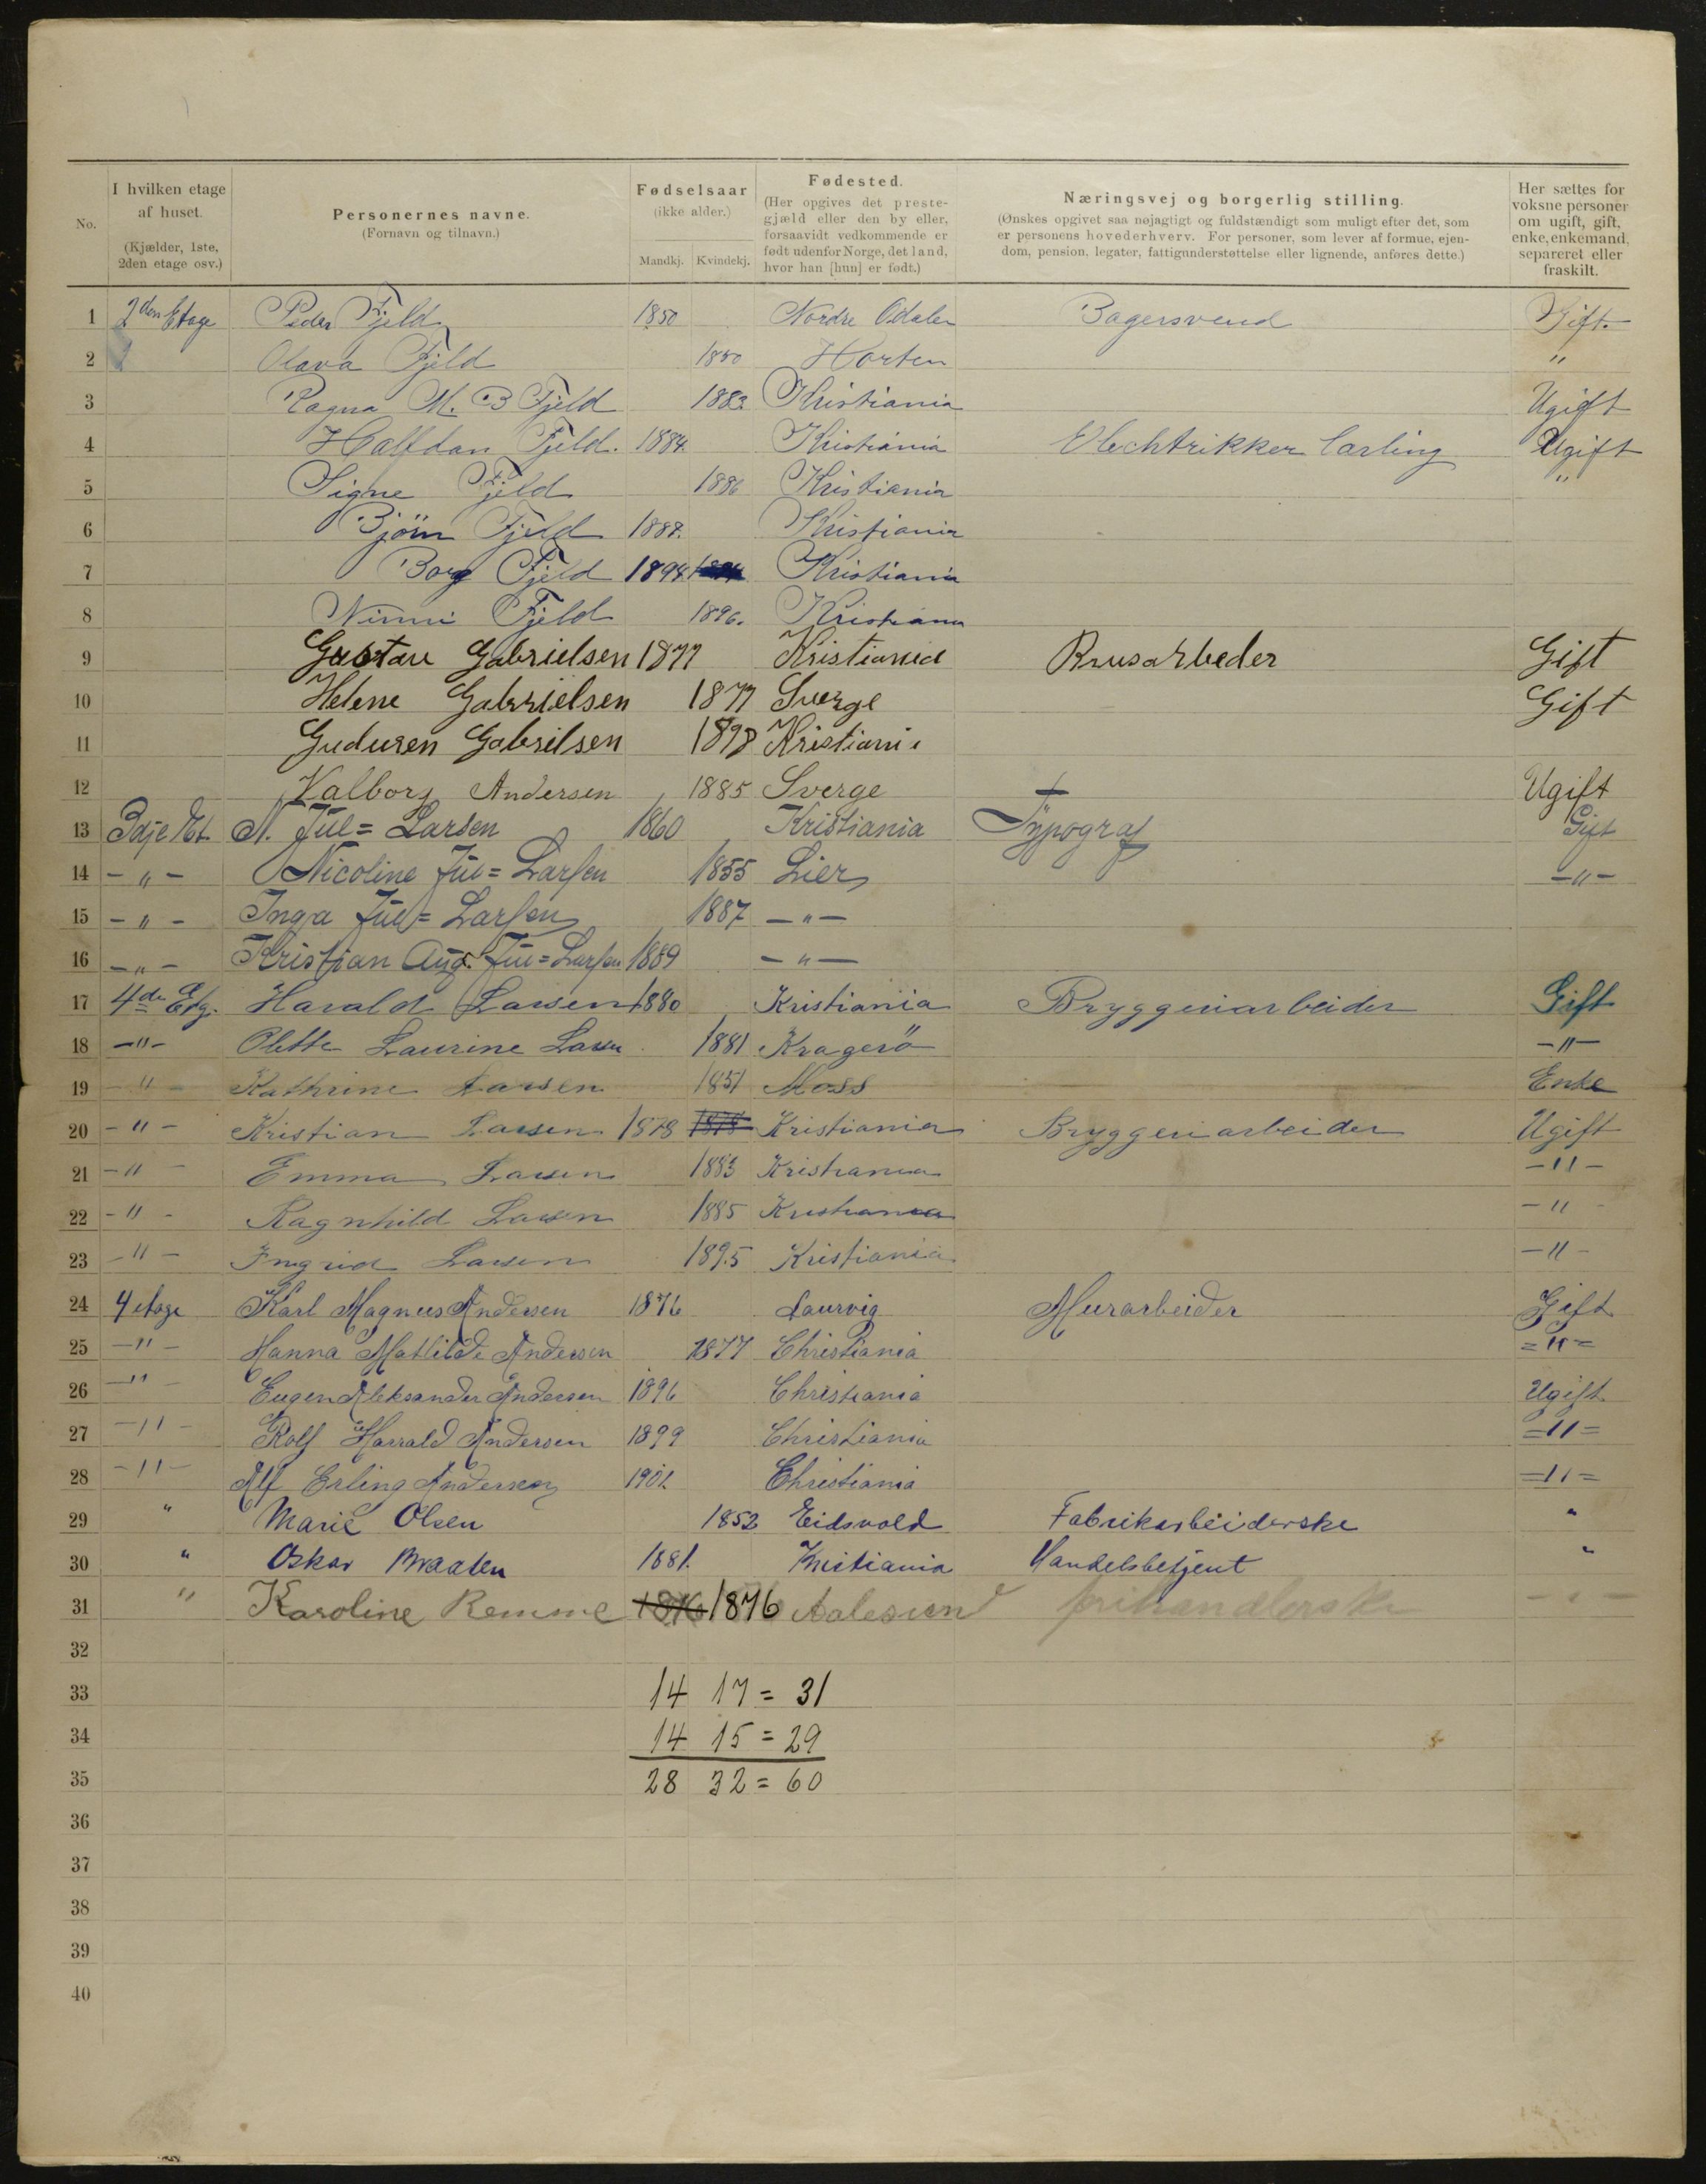 No.
I hvilken etage af huset. (Kjælder, 1ste, 2den etage osv.)
Personernes navne. (Fornavn og tilnavn.)
Fødselsaar (ikke alder.) Mandkj. Kvindekj.
Fødested. (Her opgives det prestegjæld eller den by eller, forsaavidt vedkommende er født udenfor Norge, det land, hvor han [hun] er født.)
Næringsvej og borgerlig stilling. (Ønskes opgivet saa nøjagtigt og fuldstændigt som muligt efter det, som er personens hovederhverv. For personer, som lever af formue, ejendom, pension, legater, fattigunderstøttelse eller lignende, anføres dette.)
Her sættes for voksne personer om ugift, gift, enke, enkemand, separeret eller fraskilt.
1 2den Etage Peder Fjeld 1850 Nordre Odalen Bagersvend Gift.
2 Olava Fjeld 1850 Horten "
3 Ragna M. B Fjeld 1883 Kristiania Ugift
4 Halfdan Fjeld. 1884. Kristiania Elechtrikker Carling Ugift
5 Signe Fjeld 1886 Kristiania "
6 Bjørn Fjeld 1888. Kristiania
7 Borg Fjeld 1894 Kristiania
8 Ninni Fjeld 1896. Kristiania
9 Gustav Gabrielsen 1877 Kristiania Brusarbeder Gift
10 Helene Gabrielsen 1877 Sverge Gift
11 Guduren Gabrilsen 1898 Kristiania
12 Valborg Andersen 1885 Sverge + Ugift
13 3dje Et. N. Jul=Larsen 1860 Kristiania Typograf Gift
14 -"- Nicoline Jul=Larsen 1855 Lier -"-
15 -"- Inga Jul=Larsen 1887 -"-
16 -"- Kristian Aug. Jul=Larsen 1889 -"-
17 4de Etg. Harald Larsen 1880 Kristiania Bryggeriarbeider Gift
18 -"- Olette Laurine Larsen 1881 Kragerö -"-
19 -"- Kathrine Larsen 1851 Moss Enke
20 -"- Kristian Larsen 1878 1878 Kristiania Bryggeriarbeider Ugift
21 -"- Emma Larsen 1883 Kristiania -"-
22 -"- Ragnhild Larsen 1885 Kristiania -"-
23 -"- Ingrid Larsen 1895 Kristiania -"-
24 4 etage Karl Magnus Andersen 1876 Laurvig Murarbeider Gift
25 -"- Hanna Mathilde Andersen 1877 Christiania ="=
26 -"- Eugen Aleksander Andersen 1896 Christiania Ugift
27 -"- Rolf Harrald Andersen 1899 Christiania ="=
28 -"- Alf Erling Andersen 1901 Christiania ="=
29 " Marie Olsen 1852 Eidsvold Fabrikarbeiderske "
30 " Oskar Braaten 1881. Kristiania Handelsbetjent "
31 " Karoline Remme 1876 1876 Aalesund -"-
32
33 14 17 = 31
34 14 15 = 29
35 28 32 = 60
36
37
38
39
40